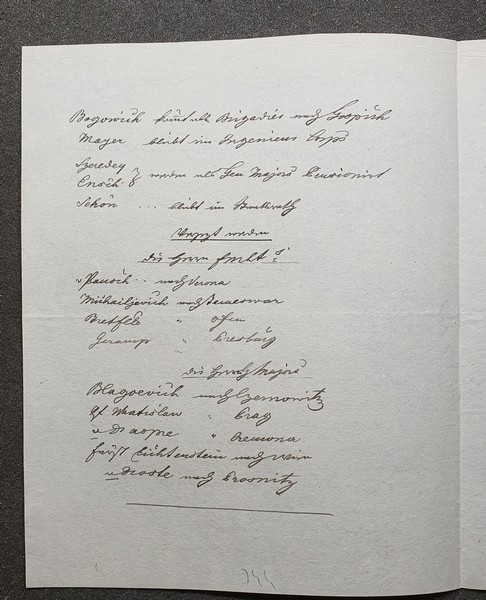 Bogovich kömt als Brigadier nach Gospich
Mayer bleibt im Ingenieur Corps
Szeredey
Ensch } werden als Gen Majors Pensionirt
Schön ... bleibt im
Versezt werden
die Herrn
v Pausch .. nach Verona
Mihailjevich nach Temeswar
Bretfeld " Ofen
Geramp " Presburg
die Herrn Majors
Blagoevich nach Czernowitz
Gf Wratislaw " Prag
v d'Aspre " Cremona
Fürst Lichtenstein nach Wien
v Droste nach Prosnitz